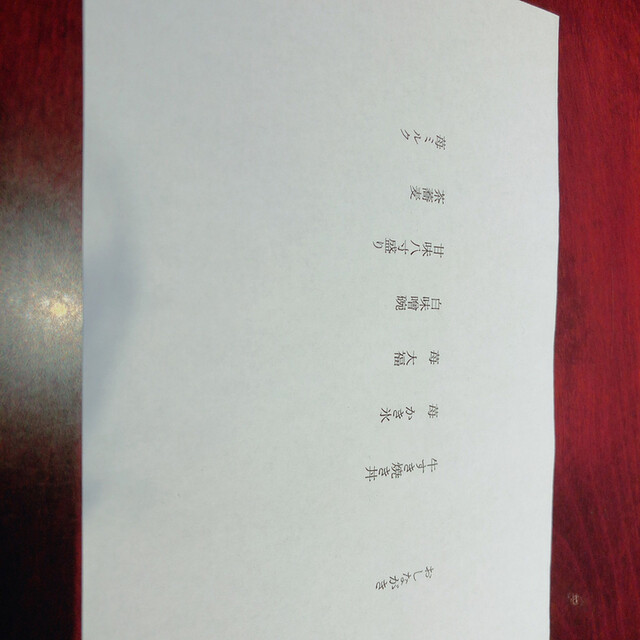 おしながき
牛すき焼き丼
苺かき氷
苺大福
白味噌碗
甘味八寸盛り
茶蕎麦
苺ミルク